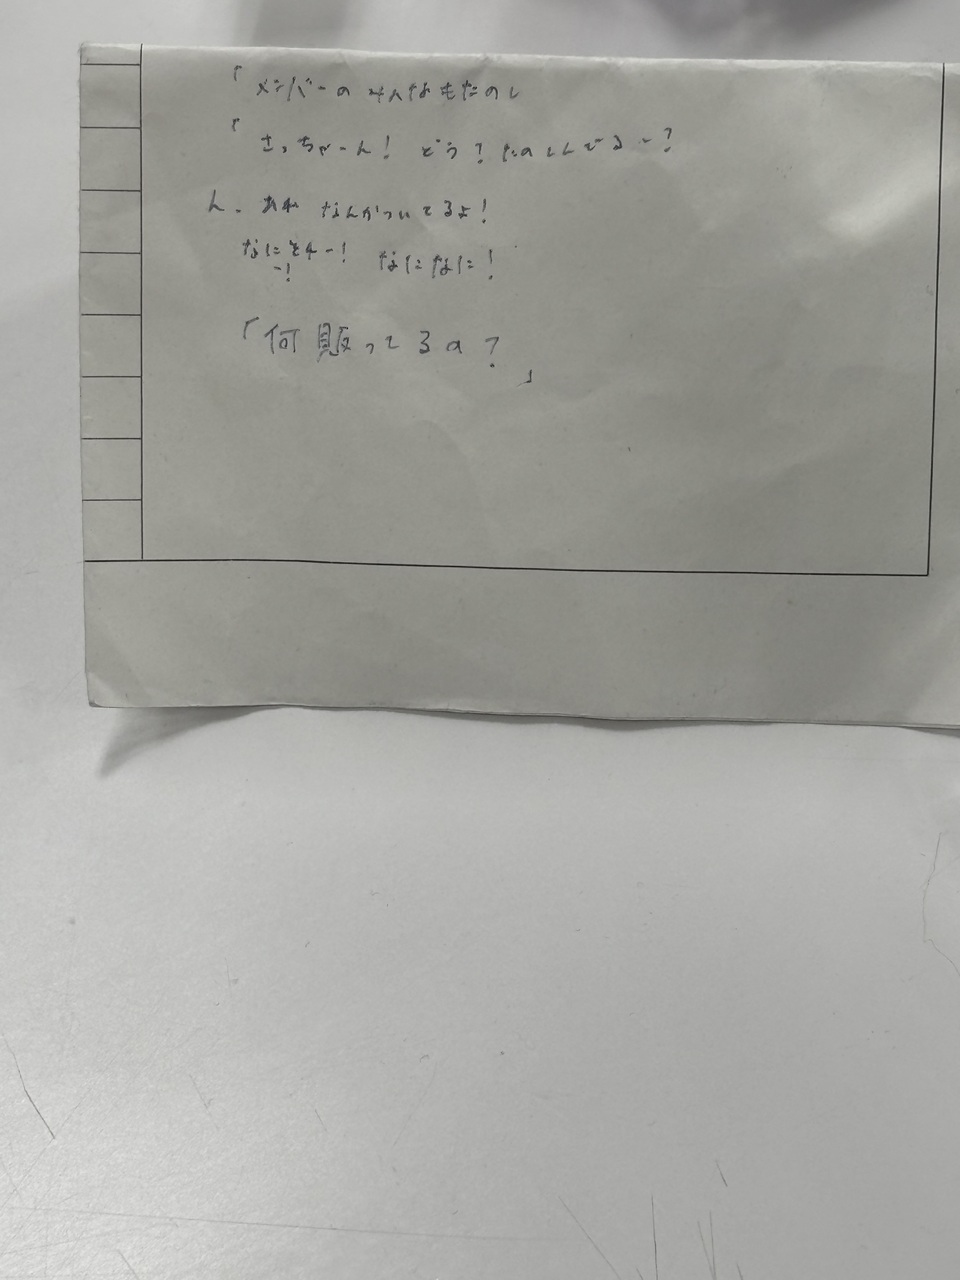 「メンバーのみんなもたのし
「さっちゃーん！ どう？ たのしんでるー？
ん、あれ なんかついてるよ！
なにそれー！ なになに！
ー！
「何販ってるの？」